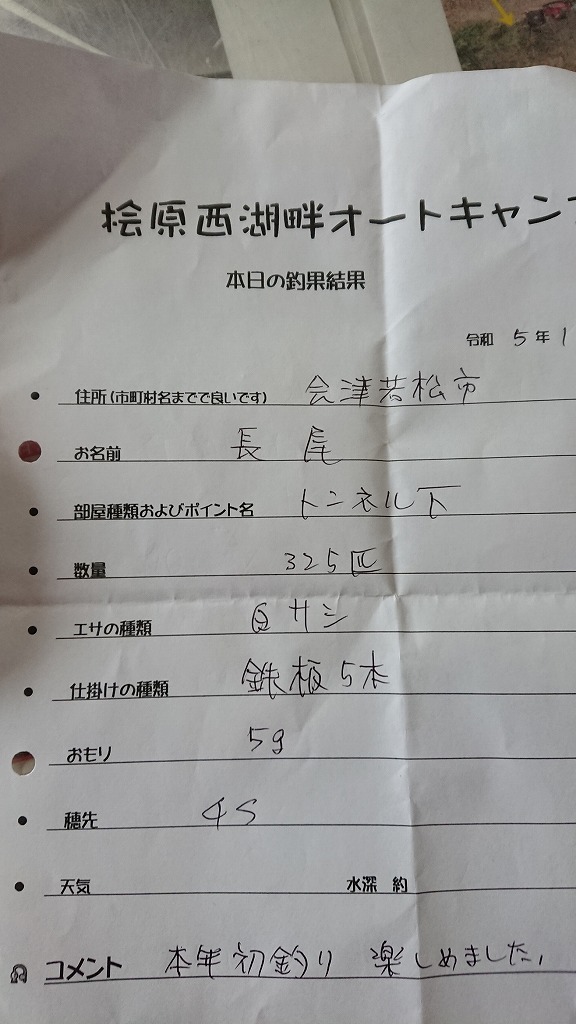 桧原西湖畔オートキャンプ
本日の釣果結果
令和 5年 1
住所(市町村名までで良いです) 会津若松市
お名前 長尾
部屋種類およびポイント名 トンネル下
数量 325匹
エサの種類 白サシ
仕掛けの種類 鉄板5本
おもり 5g
穂先 4S
天気 水深 約
コメント 本年初釣り 楽しめました。